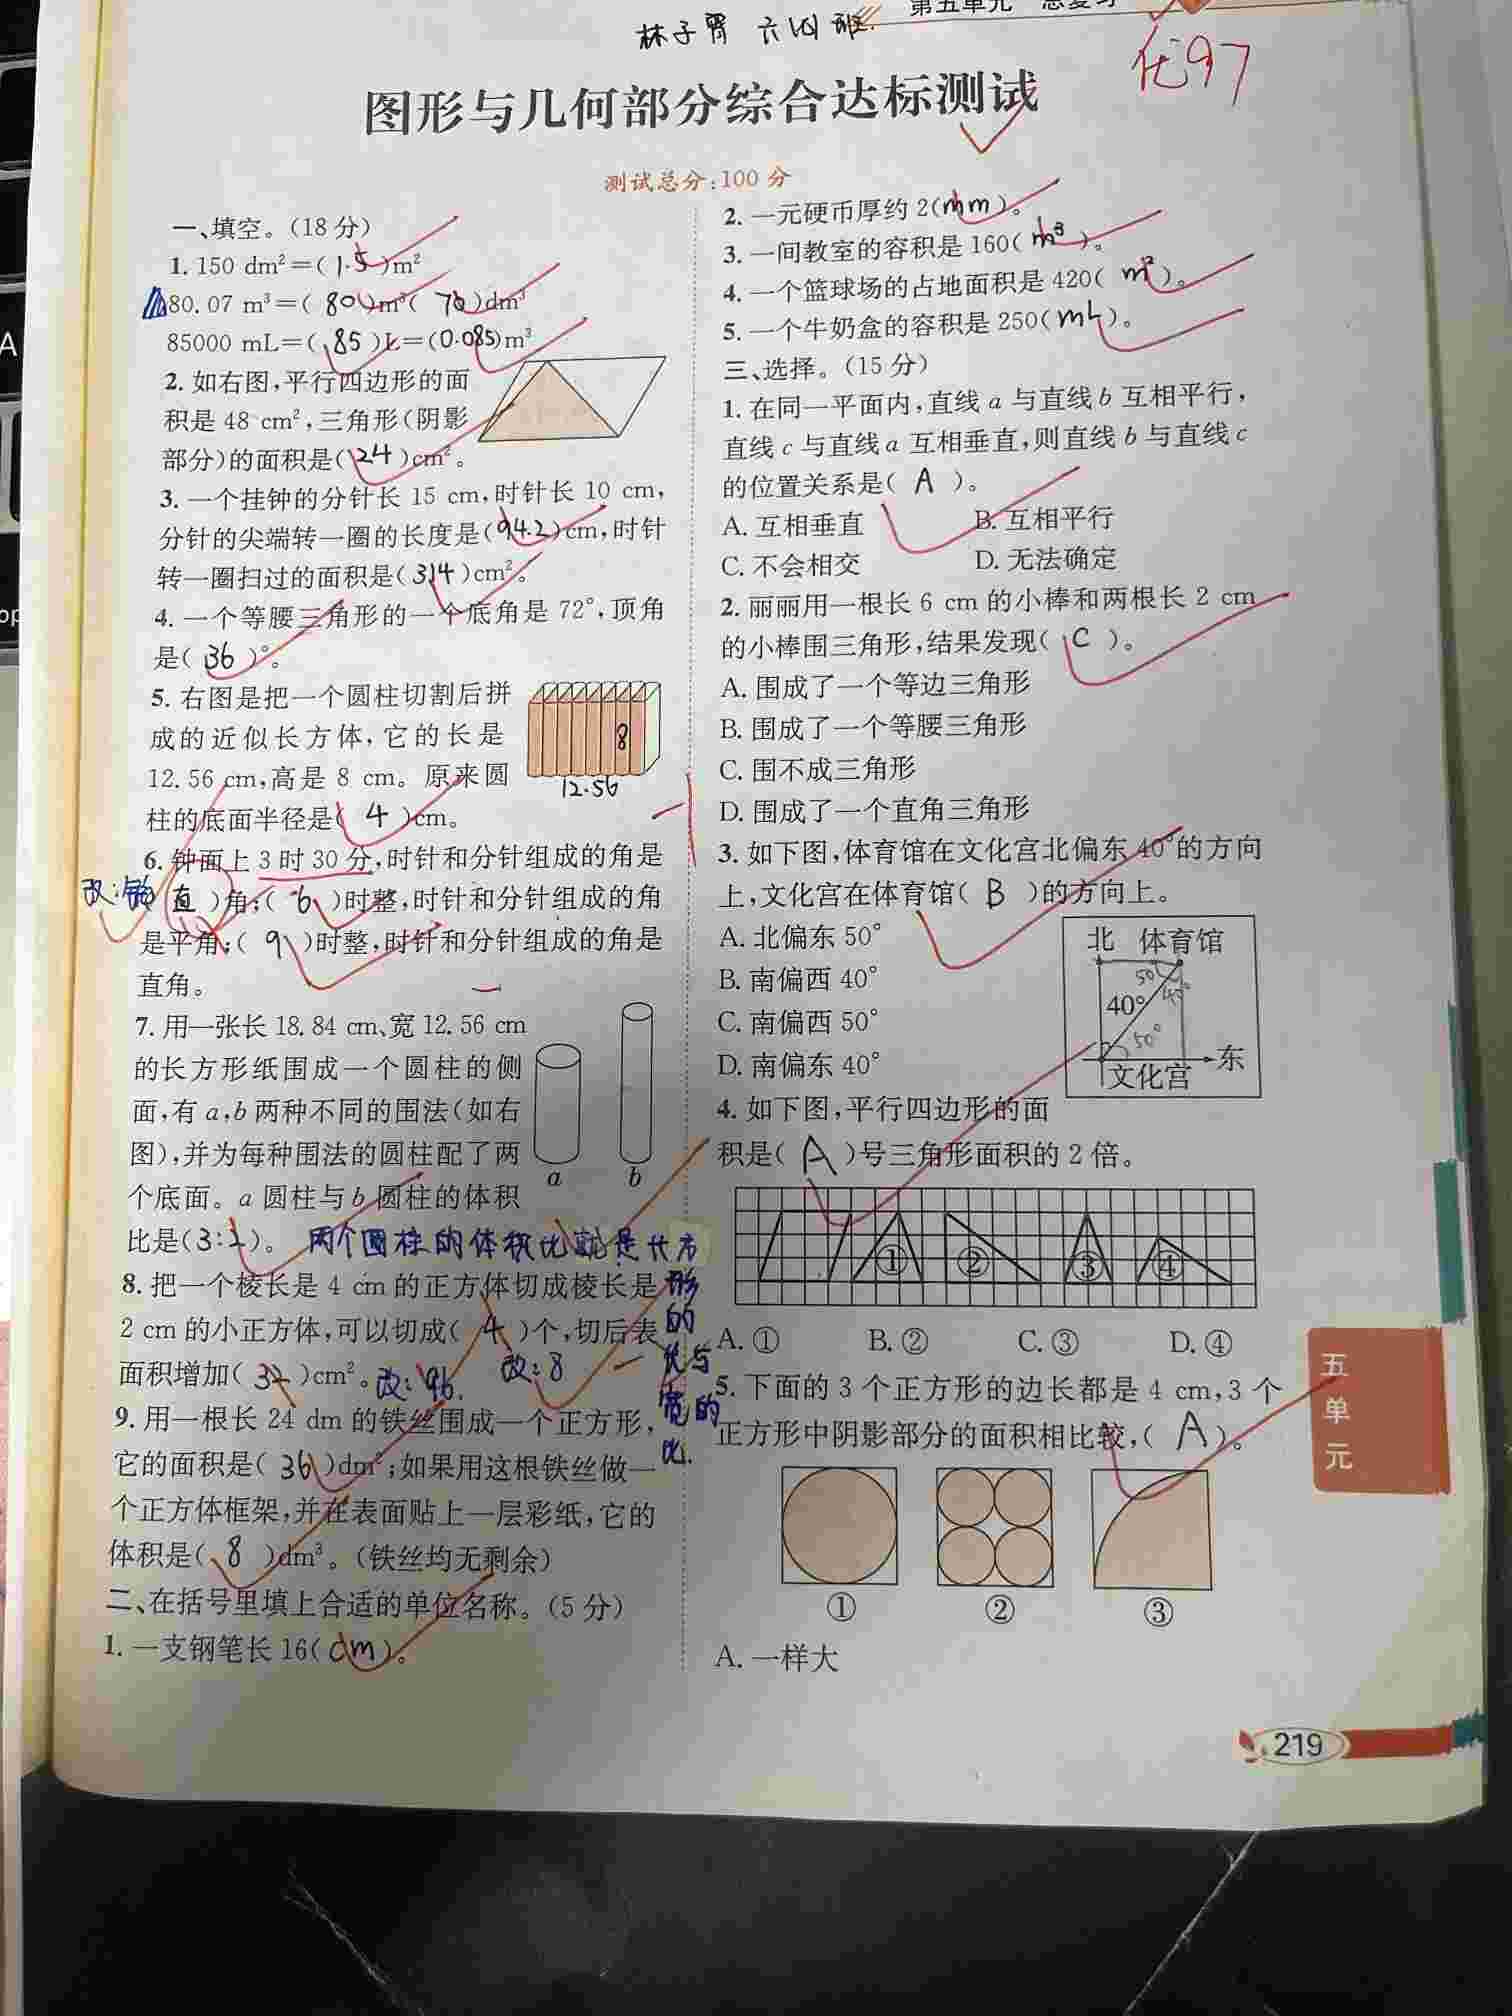 第五单元 总复习
林子胃 六(4)班
优97
图形与几何部分综合达标测试
测试总分:100 分
一、填空。(18 分)
1. 150 dm²=(1.5)m²
80.07 m³=(80)m³(70)dm³
85000 mL=(85)L=(0.085)m³
2. 如右图,平行四边形的面
积是 48 cm²,三角形(阴影
部分)的面积是(24)cm²。
3. 一个挂钟的分针长 15 cm,时针长 10 cm,
分针的尖端转一圈的长度是(94.2)cm,时针
转一圈扫过的面积是(314)cm²。
4. 一个等腰三角形的一个底角是 72°,顶角
是(36)°。
5. 右图是把一个圆柱切割后拼
成的近似长方体,它的长是
12.56 cm,高是 8 cm。原来圆
柱的底面半径是(4)cm。
8
12.56
-1
6. 钟面上 3 时 30 分,时针和分针组成的角是
改:锐
(直)角;(6)时整,时针和分针组成的角
是平角;(9)时整,时针和分针组成的角是
直角。
7. 用一张长 18.84 cm、宽 12.56 cm
的长方形纸围成一个圆柱的侧
面,有 a,b 两种不同的围法(如右
图),并为每种围法的圆柱配了两
个底面。a 圆柱与 b 圆柱的体积
比是(3:2)。
a b
两个圆柱的体积比就是长方
形的长与宽的比.
8. 把一个棱长是 4 cm 的正方体切成棱长是
2 cm 的小正方体,可以切成(4)个,切后表
面积增加(32)cm²。
改:96.
改:8
9. 用一根长 24 dm 的铁丝围成一个正方形,
它的面积是(36)dm²;如果用这根铁丝做一
个正方体框架,并在表面贴上一层彩纸,它的
体积是(8)dm³。(铁丝均无剩余)
二、在括号里填上合适的单位名称。(5 分)
1. 一支钢笔长 16(cm)。
2. 一元硬币厚约 2(mm)。
3. 一间教室的容积是 160(m³)。
4. 一个篮球场的占地面积是 420(m²)。
5. 一个牛奶盒的容积是 250(mL)。
三、选择。(15 分)
1. 在同一平面内,直线 a 与直线 b 互相平行,
直线 c 与直线 a 互相垂直,则直线 b 与直线 c
的位置关系是(A)。
A. 互相垂直 B. 互相平行
C. 不会相交 D. 无法确定
2. 丽丽用一根长 6 cm 的小棒和两根长 2 cm
的小棒围三角形,结果发现(C)。
A. 围成了一个等边三角形
B. 围成了一个等腰三角形
C. 围不成三角形
D. 围成了一个直角三角形
3. 如下图,体育馆在文化宫北偏东 40°的方向
上,文化宫在体育馆(B)的方向上。
A. 北偏东 50°
B. 南偏西 40°
C. 南偏西 50°
D. 南偏东 40°
北 体育馆
50° 40°
40°
50°
东
文化宫
4. 如下图,平行四边形的面
积是(A)号三角形面积的 2 倍。
① ② ③ ④
A. ① B. ② C. ③ D. ④
5. 下面的 3 个正方形的边长都是 4 cm,3 个
正方形中阴影部分的面积相比较,(A)。
① ② ③
A. 一样大
五单元
219